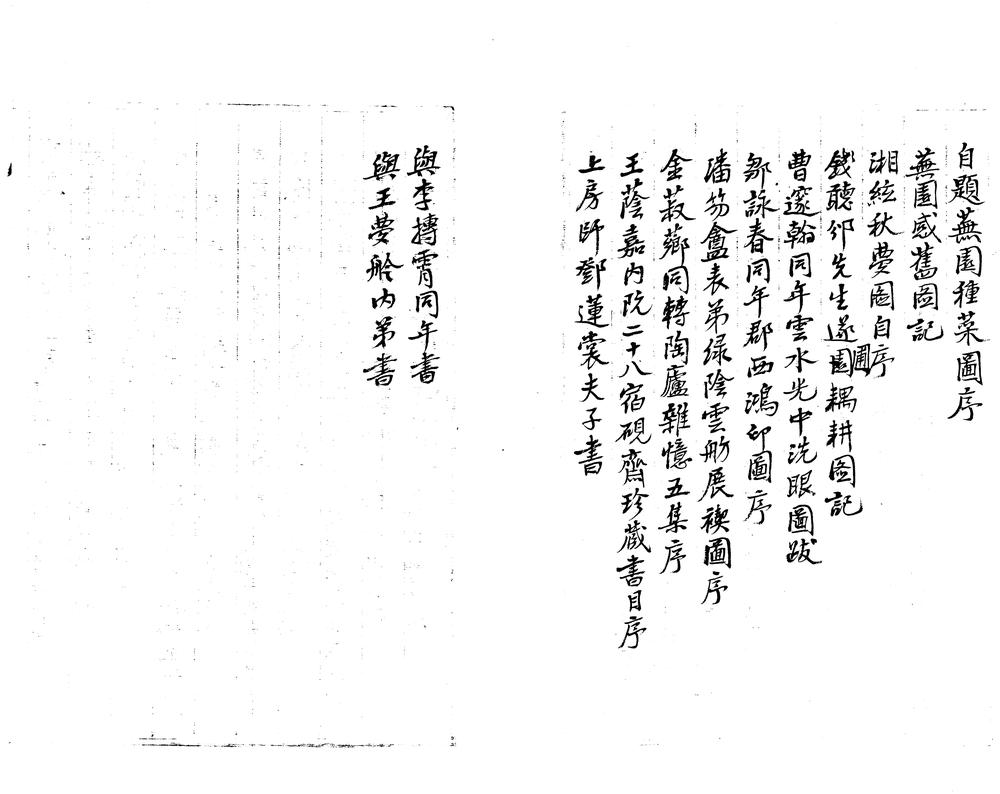 自題蕪園種菜圖序
蕪園感舊圖記
湘絃秋夢圖自序
錢聽邠先生遂園圃耦耕圖記
曹邃翰同年雲水光中洗眼圖跋
鄒詠春同年郡西鴻印圖序
潘笏盦表弟綠陰雲舫展禊圖序
金菽薌同轉陶廬雜憶五集序
王蔭嘉內阮二十八宿硯齋珍藏書目序
上房師鄧蓮裳夫子書
與李摶霄同年書
與王夢舲內弟書